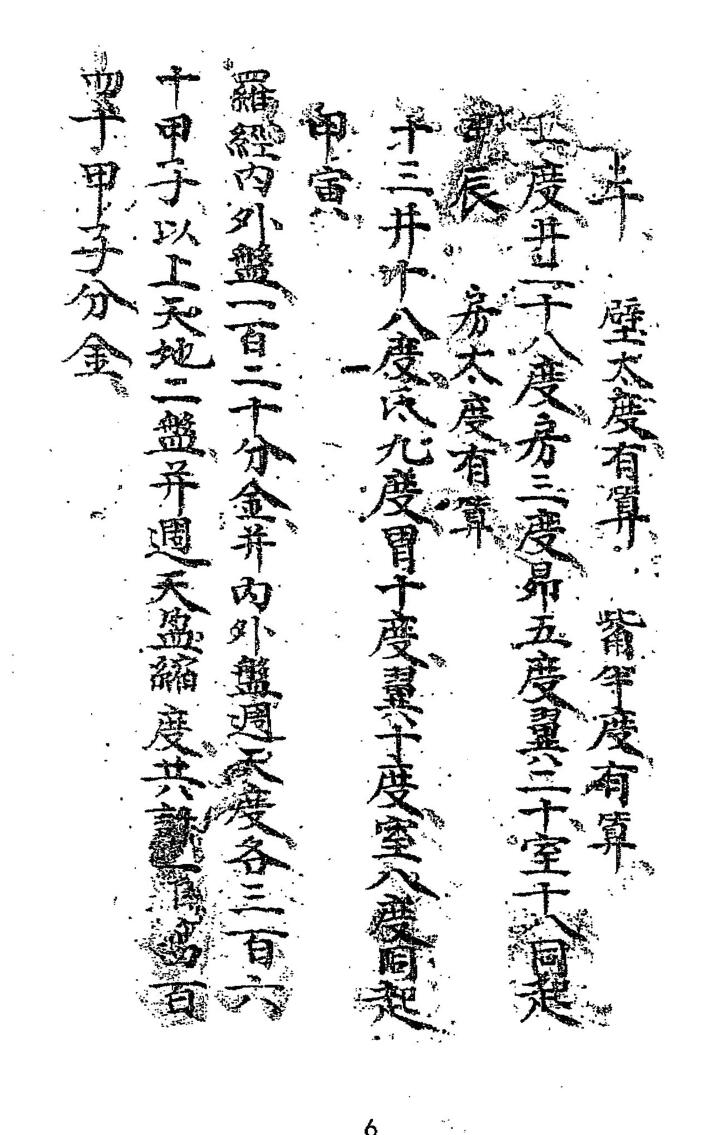 壁太度有算 觜半度有算
度井二十八度房三度昴五度翼二十室十八同起
甲辰 房太度有算
十三井十八度氐九度胃十度翼十度室八度同起
甲寅
羅經內外盤一百二十分金并內外盤週天度各三百六
十甲子以上天地二盤并週天盈縮度共計 百
四十甲子分金
6